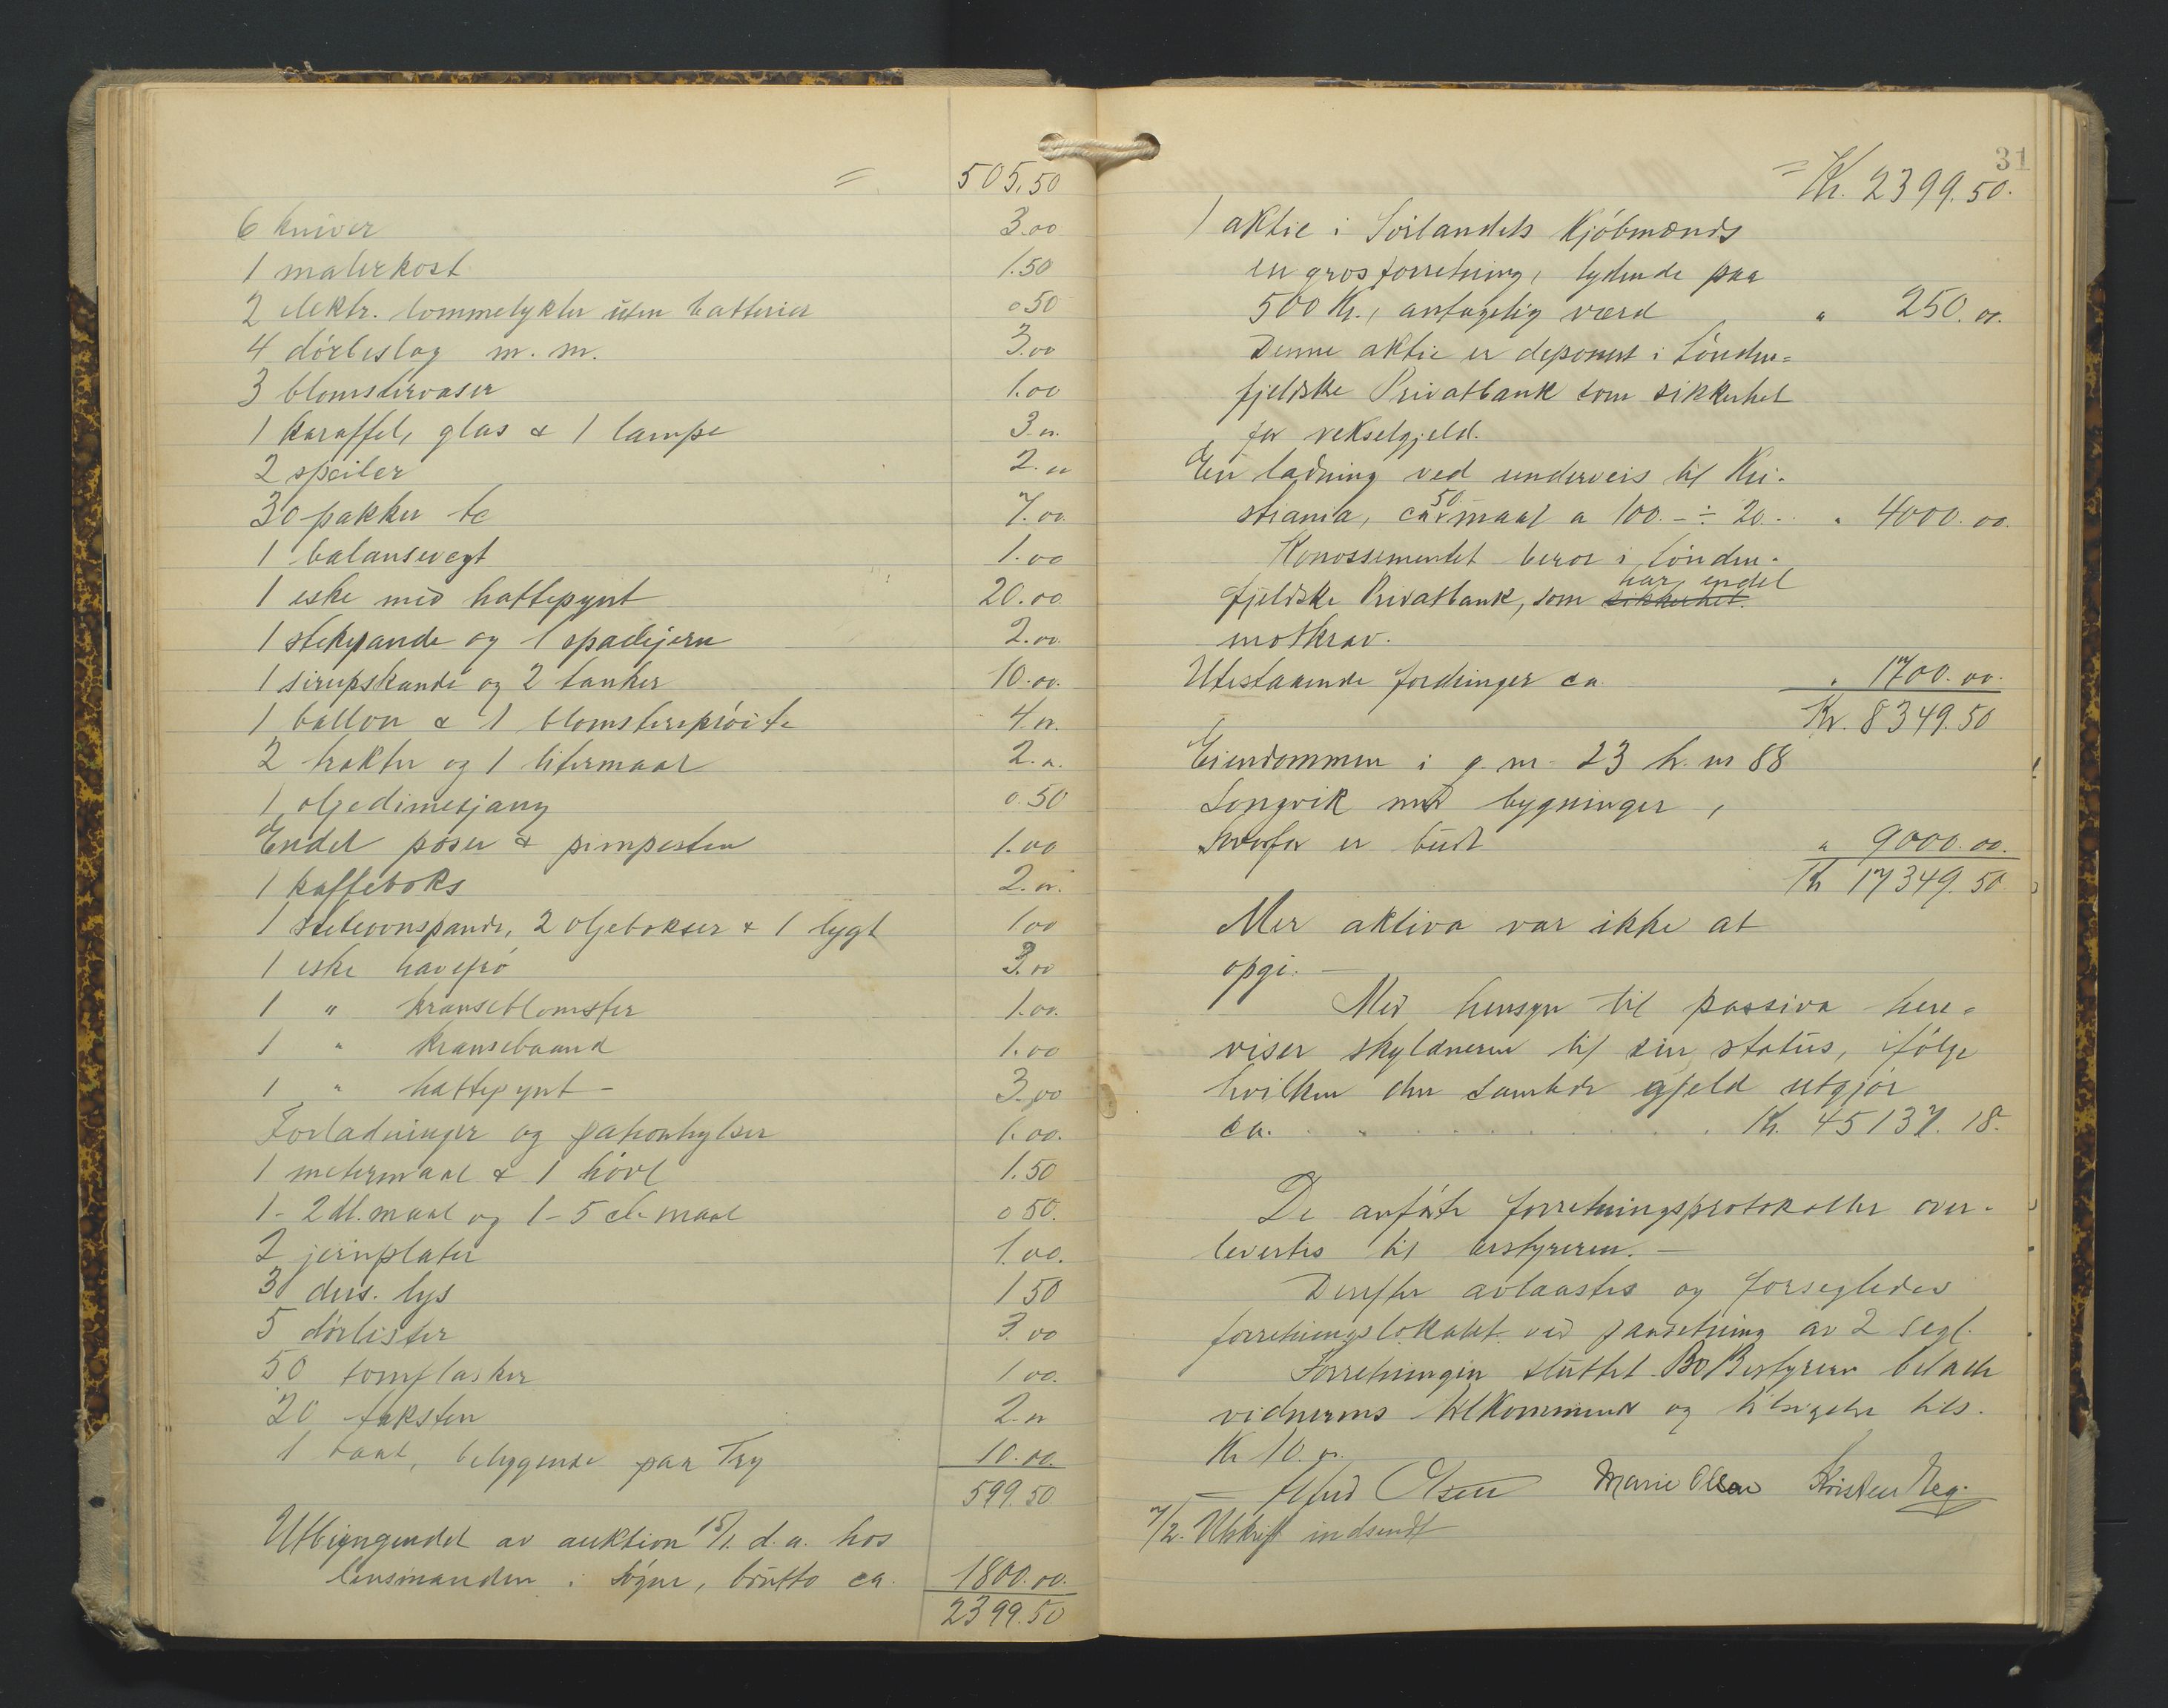 = 505.50
6 kniver 3.00
1 malerkost 1.50
2 elektr. lommelykter uten batterier 0 50
4 dörbeslag m. m. 3.00
3 blomstervaser 1.00
1 karaffel, glas & 1 lampe 3.00
2 speiler 2.00
30 pakker te 7.00
1 balansevegt 1.00
1 eske med hattepynt 20.00
1 stekepande og 1 spadejern 2.00
1 sirupskande og 2 tanker 10.00
1 ballon & 1 blomsterspröite 4.00
2 trakter og 1 litermaal 2.00
1 oljedimesjang 0.50
Endel poser & pimpesten 1.00
1 kaffeboks 2.00
1 stekeovnspande, 2 oljebokser & 1 lygt 1 00
1 eske havefrö 3.00
1 " kranseblomster 1.00
1 " kransebaand 1.00
1 " hattepynt - 3.00
Forladninger og patronhylser 1.00.
1 metermaal & 1 hövl 1.50
1 - 2 dl. maal og 1 - 5 dl. maal 0 50.
2 jernplater 1.00.
3 dus. lys 1 50
5 dörlister 3.00
50 tomflasker 1 00.
20 taksten 2.00
1 baat, beliggende paa Try 10.00.
599.50
Utbringendet av auktion 15/1. d. a. hos
lensmanden i Sögne, brutto ca. 1800.00.
2399.50
31
= Kr. 2399.50.
1 aktie i Sörlandets Kjöbmænds
en gros forretning, lydende paa
500 Kr., antagelig værd " 250.00.
Denne aktie er deponert i Sönden=
fjeldske Privatbank som sikkerhet
for vekselgjeld.
En ladning ved underveis til Kri-
stiania, ca 50 maal a 100. - ÷ 20.- " 4000.00.
Konossementet beror i Sönden-
fjeldske Privatbank, som sikkerhet. har endel
motkrav.
Utestaaende fordringer ca. " 1700.00.
Kr. 8349.50
Eiendommen i g. nr. 23 br. nr 88
Songvik med bygninger,
hvorfor er budt " 9000.00.
Kr 17349.50
Mer aktiva var ikke at
opgi. -
Med hensyn til passiva hen=
viser skyldneren til sin status, ifölge
hvilken den samlede gjeld utgjör
ca. . . . . . . . . . Kr. 45137.18.
De anförte forretningsprotokoller over-
levertes til bestyreren. -
Derefter avlaastes og forsegledes
forretningslokalet ved paasetning av 2 segl.
Forretningen sluttet. BoBestyreren betalte
vidnerens tilkommende og tilsigelse tils.
Kr 10.00.
Alfred Olsen Marie Olsen Kristen Reg.
7/2. Utskrift indsendt